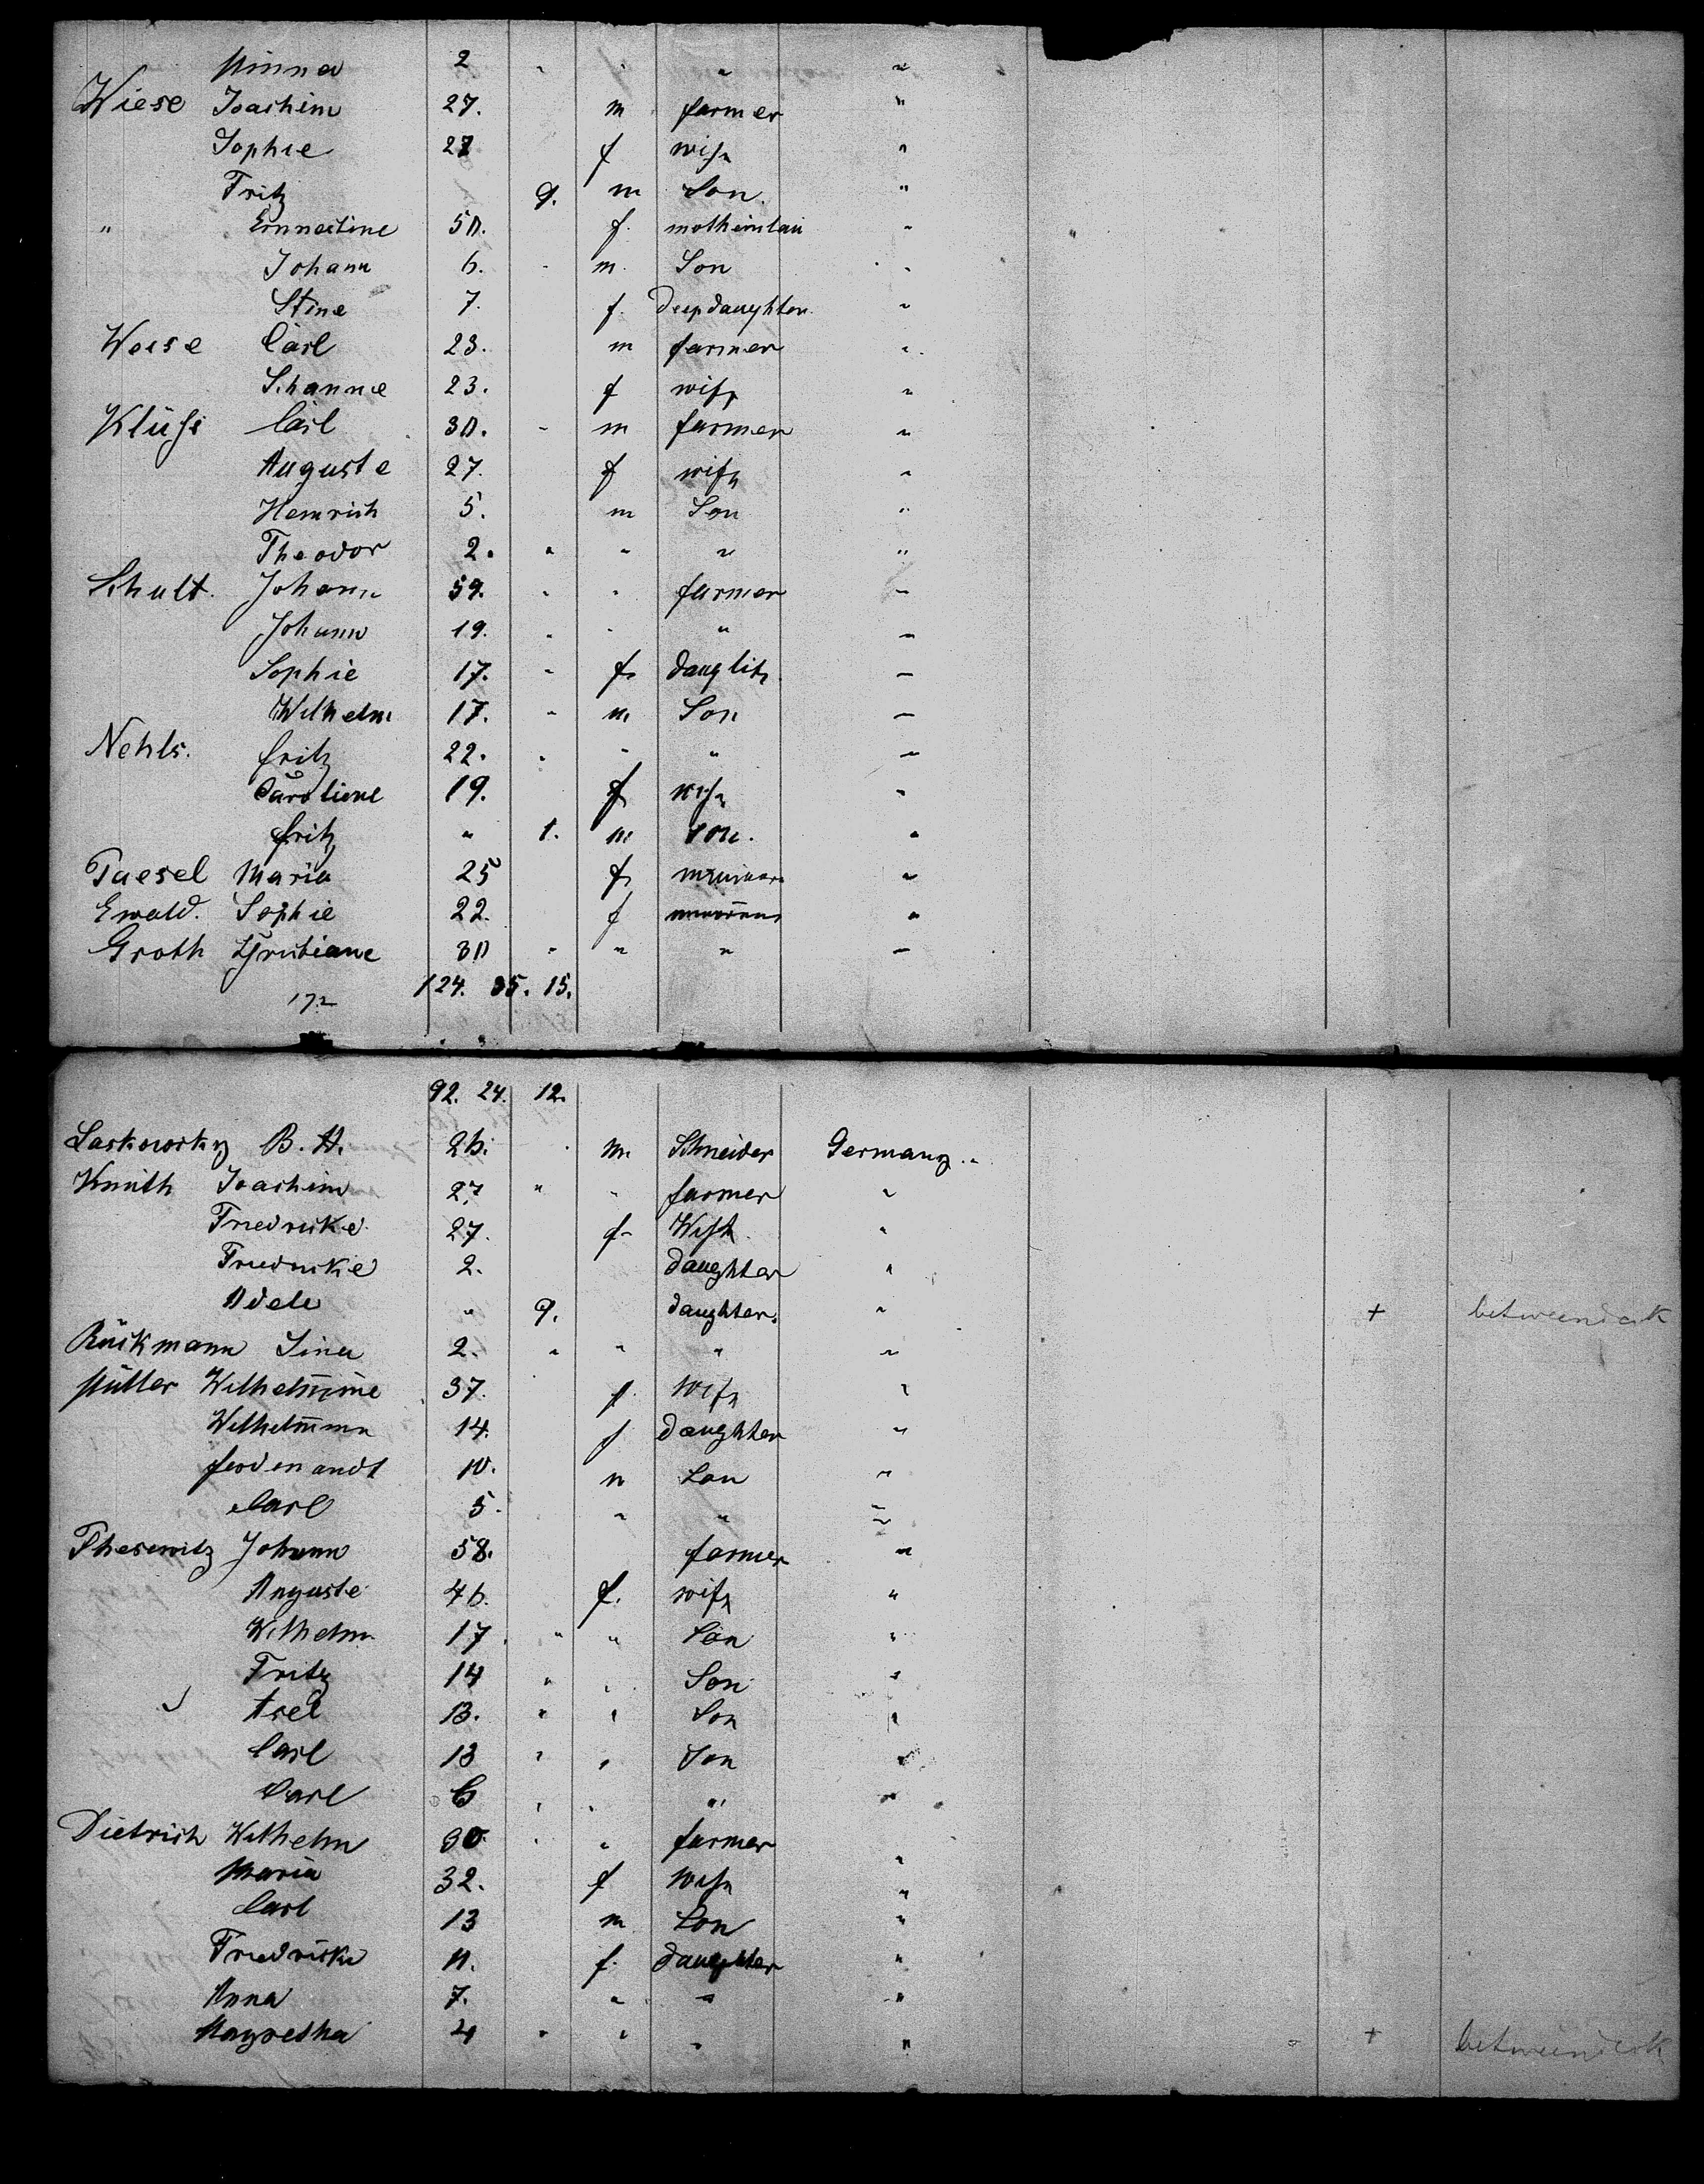 Minna 2 " " " "
Wiese Joachim 27. m farmer "
Sophie 27 f wife "
Fritz 9. m Son. "
" Ernnestine 50. f. motherinlaw "
Johann 6. " m. Son "
Stine 7. f. Deepdaughter "
Weise Carl 23. m farmer "
Schanne 23. f wife "
Klüfs Carl 30. " m farmer "
Auguste 27. f wife "
Heinrich 5. m Son "
Theodor 2. " " " "
Schult. Johann 59. " " farmer "
Johann 19. " " " "
Sophie 17. " f. daughter "
Wilhelm 17. " m. Son "
Nehls. fritz 22. " " " "
Caroline 19. f wife "
fritz " 1. m son. "
Taesel Maria 25 f "
Ewald. Sophie 22. f "
Groth 30 " " " "
172 124. 35. 15.
92. 24. 12.
Laskowsky B. H. 26. m. Schneider Germany "
Knuth Joachim 27 " " farmer "
Friedricke 27. f Wife "
Friedricke 2. daughter "
Adele " 9. daughter. " + betweendeck
Rückmann Lina 2. " " " "
Müller Wilhelmine 37. f. Wife "
14. f daughter "
ferdenandt 10. m Son "
Carl 5. " " "
Thesewitz Johann 58. farmer "
Auguste 46. f. wife "
Wilhelm 17. " " Son "
Fritz 14 " " Son "
Axel 13. " " Son "
Carl 13 " " Son "
Carl 6 " " " "
Dietrich Wilhelm 30. " " farmer "
Maria 32. f wife "
Carl 13 m Son "
Friedricke 11. f. daughter "
Anna 7. " " "
Magretha 4 " " " " + betweendeck